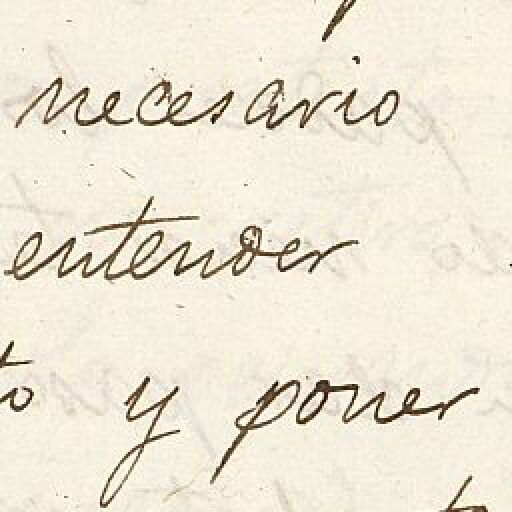 necesario
entender
to y poner